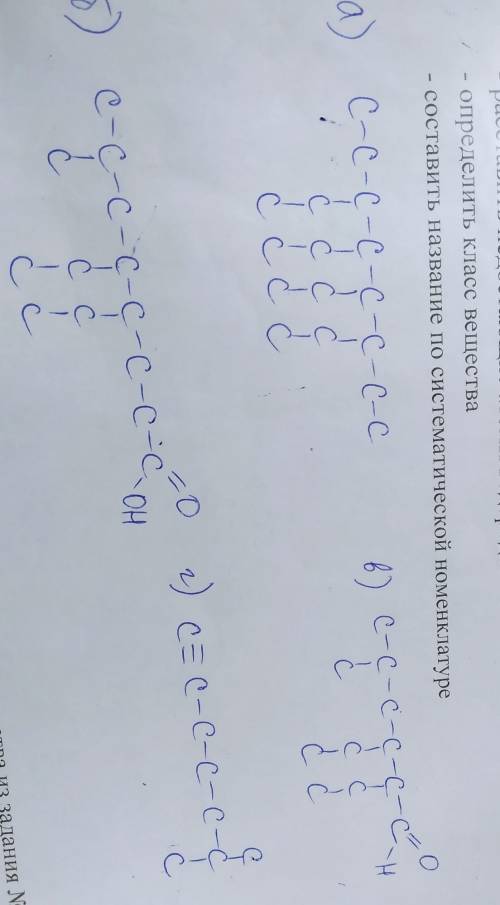 - определить класс вещества
- составить название по систематической номенклатуре
а) C-C-C-C-C-C-C-C
C C C C
C C C C
в) C-C-C-C-C-C=O
-H
C C C
C C
б) C-C-C-C-C-C-C-C=O
-OH
C C C
C C
г) C≡C-C-C-C-C-C
C
из задания №